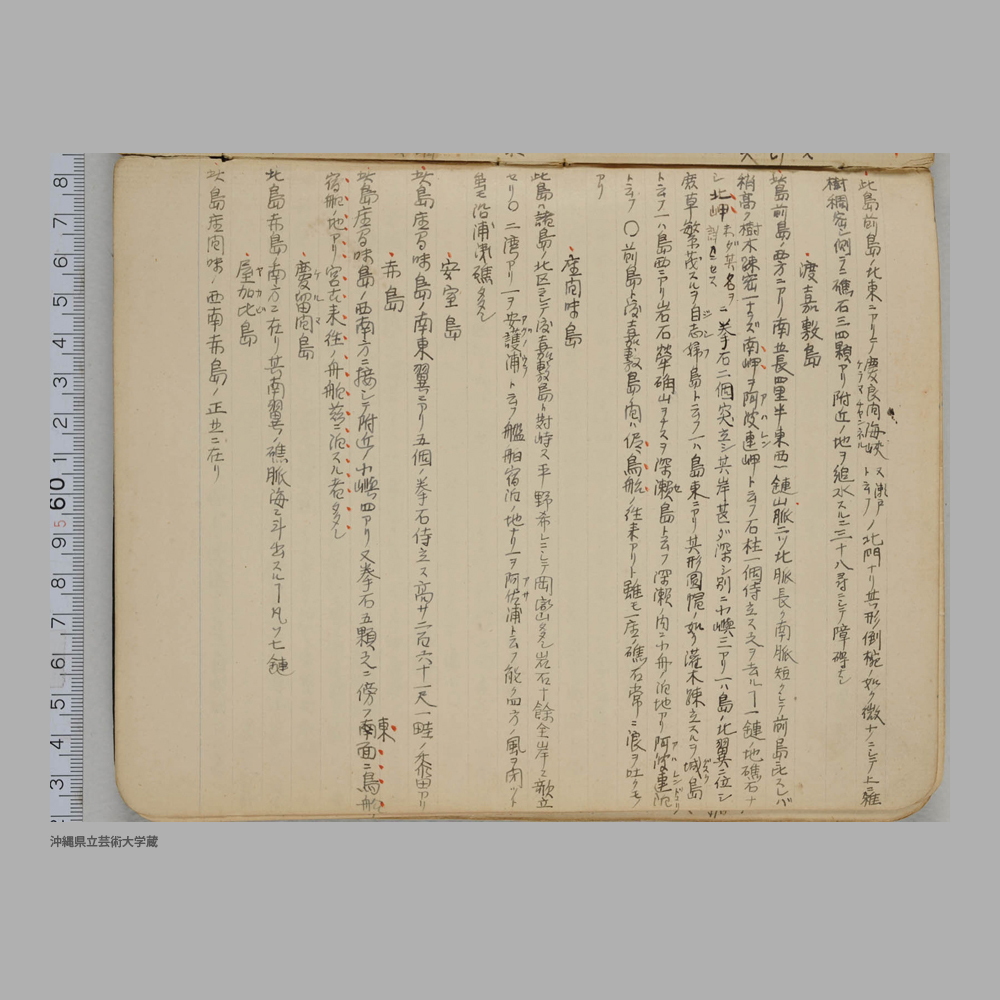 此島前島ノ北東ニアリテ慶良间海峡 又瀬戸トモフノ北門ナリ其形倒椀ノ如ク微ナニシテ上ニ雖
ケラマ チャンネル
樹稠密シ側ラニ礁石三四顆アリ附近ノ地ヲ縋水スルニ三十八尋ニシテ障碍ナシ
渡嘉敷島
此島前島ノ西方ニアリ南北長四里半東西一鏈山脈二ツ北脈長ク南脈短クシテ前島ニ比スレバ
稍高ク樹木疎密一ナラズ南岬ヲ阿波連岬トモフ石柱一個侍立ス之ヲ去ル丁一鏈ノ地礁石ナ
アハレン
シ北岬未ダ其名ヲ ニ拳石二個突立シ其岸甚ダ深シ別ニ小嶼三アリ一ハ島ノ北翼ニ位シ
鹿草繁茂スルヲ自志婦島トモフ一ハ島東ニアリ其形圓帽ノ如ク灌木疎立スルヲ城島
ジシフ
トモフ一ハ島西ニアリ岩石犖确山ヲナスヲ深瀬島トモフ深瀬ノ内ニ小舟ノ泊地アリ阿波連
トモフ〇前島ト渡嘉敷島ノ间ハ鳥船ノ往来アリト雖モ一座ノ礁石常ニ浪ヲ吐クモ
アリ
座间味島
此島ハ諸島ノ北区ニシテ渡嘉敷島ト対峙ス平野希レニシテ岡巒山多ク岩石十餘全岸ニ散立
セリ〇二湾アリ一ヲ安護浦トモフ艦舶宿泊ノ地ナリ一ヲ阿佐浦トモフ能ク四方ノ風ヲ闭ツト
アゴノウラ
アサ
雖モ沿浦礁多シ
安室島
此島座间味島ノ南東翼ニアリ五個ノ拳石侍立ス高サ二百六十一尺一畦ノ禾田アリ
赤島
此島座间味島ノ西南方ニ接シテ附近ノ小嶼四アリ又拳石五顆之ニ傍フ東南面ニ鳥船
宿舩ノ地アリ宮古来往ノ舟舩茲ニ泊スル者多シ
慶留间島
ケルマ
此島赤島ノ南方ニ在リ其南翼ノ礁脈海ニ斗出スル丁凡ソ七鏈
屋加比島
ヤカヒ
此島座间味ノ西南赤島ノ正北ニ在リ
沖縄県立芸術大学蔵